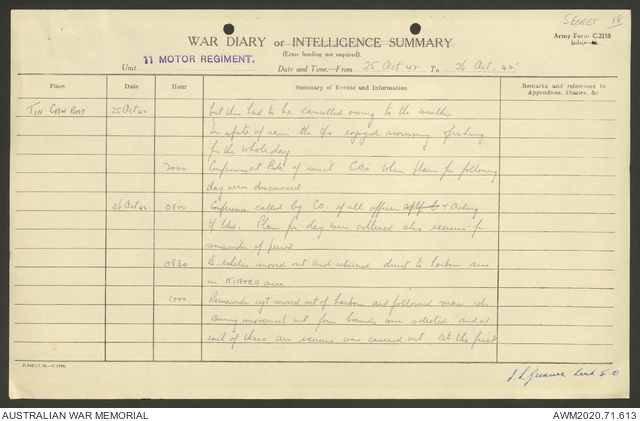 SECRET 18
WAR DIARY or INTELLIGENCE SUMMARY
Army Form C.2118
(Erase heading not required).
Unit 11 MOTOR REGIMENT.
Date and Time—From 25 Oct 42 To 26 Oct. 42
Place Date Hour Summary of Events and Information Remarks and references to
Appendices, Diaries, &c
TIN CAN BAY 25 Oct 42 but this had to be cancelled owing to the weather
In spite of rain the enjoyed swimming & fishing
for the whole day
2000 Conference at of unit COs when plans for following
day were discussed
26 Oct 42. 0900 Conference called by CO. of all officers & Acting
Plans for day were outlined also exercise for
remainder of period
0930 B. echelon moved out and returned direct to harbour area
in KIAORA area
1000 Remainder regt moved out of harbour and followed main
During movement out four bounds were selected and at
each of these an exercise was carried out. At the first
Lieut I.O
AUSTRALIAN WAR MEMORIAL
AWM2020.71.613